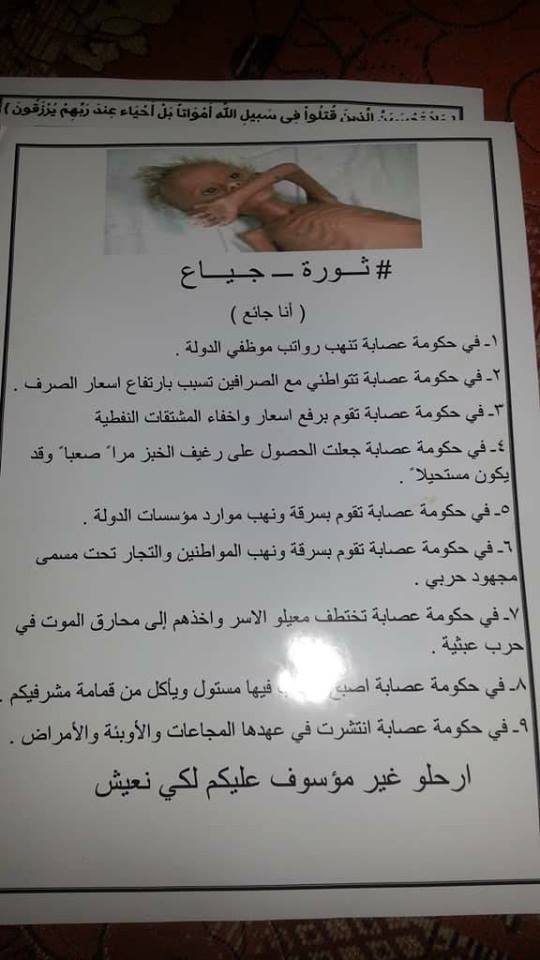 الَّذِينَ قُتِلُواْ فِي سَبِيلِ اللَّهِ أَمْوَاتاً بَلْ أَحْيَاء عِندَ رَبِّهِمْ يُرْزَقُونَ )
# ثـــورة ـــ جـيــاع
( أنا جائع )
١ـ في حكومة عصابة تنهب رواتب موظفي الدولة .
٢ـ في حكومة عصابة تتواطئي مع الصرافين تسبب بارتفاع اسعار الصرف .
٣ـ في حكومة عصابة تقوم برفع اسعار واخفاء المشتقات النفطية
٤ـ في حكومة عصابة جعلت الحصول على رغيف الخبز مراً صعباً وقد
يكون مستحيلاً .
٥ـ في حكومة عصابة تقوم بسرقة ونهب موارد مؤسسات الدولة .
٦ـ في حكومة عصابة تقوم بسرقة ونهب المواطنين والتجار تحت مسمى
مجهود حربي .
٧ـ في حكومة عصابة تختطف معيلو الاسر واخذهم إلى محارق الموت في
حرب عبثية .
٨ـ في حكومة عصابة اصبح فيها مستول ويأكل من قمامة مشرفيكم .
٩ـ في حكومة عصابة انتشرت في عهدها المجاعات والأوبئة والأمراض .
ارحلو غير مؤسوف عليكم لكي نعيش